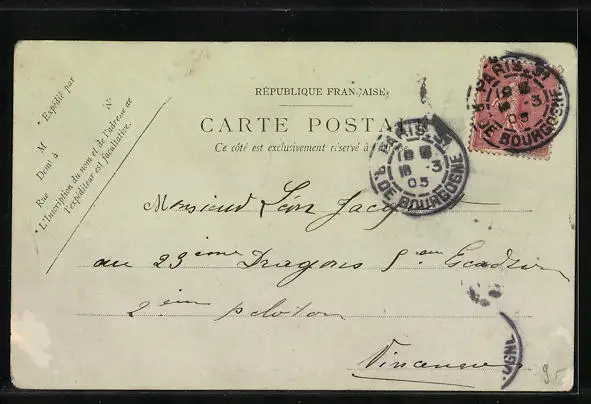 RÉPUBLIQUE FRANÇAISE
CARTE POSTALE
Ce côté est exclusivement réservé à l'adresse
Expédié par
M
Demt à
Rue
N°
* L'Inscription du nom et de l'adresse de
l'expéditeur est facultative.
PARIS. 31
R. DE BOURGOGNE
18
18 3
05
PARIS. 31
R. DE BOURGOGNE
18
3
05
Monsieur Léon
au 23ème Dragons 5e Escadron
2ème peloton
Vincennes
OGNE